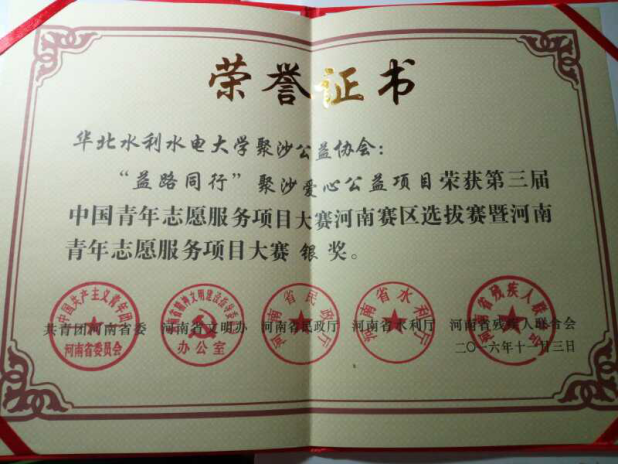 荣誉证书
华北水利水电大学聚沙公益协会：
“益路同行”聚沙爱心公益项目荣获第三届
中国青年志愿服务项目大赛河南赛区选拔赛暨河南
青年志愿服务项目大赛 银奖。
共青团河南省委 河南省文明办 河南省民政厅 河南省水利厅 河南省残疾人联合会
中国共产主义青年团
河南省委员会
办公室
河南省民政厅
河南省水利厅
河南省残疾人联合会
二〇一六年十一月三日